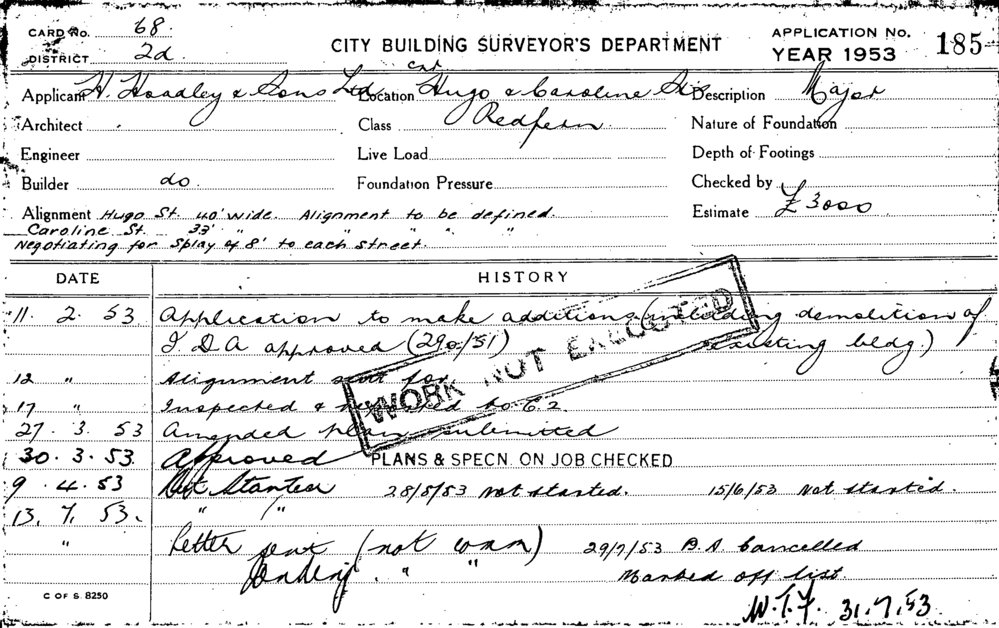 CARD No. 68.
DISTRICT 2d.
CITY BUILDING SURVEYOR'S DEPARTMENT
APPLICATION No. 185
YEAR 1953
Applicant H. Hoadley & Sons Ltd. Location Cnr Hugo & Caroline Sts Description Major
Architect Class Redfern Nature of Foundation
Engineer Live Load Depth of Footings
Builder do. Foundation Pressure Checked by
Alignment Hugo St. 40' wide. Alignment to be defined. Estimate £3000
Caroline St. 33' " " " "
Negotiating for Splay of 8' to each street.
DATE HISTORY
11. 2. 53 Application to make additions (including demolition of
I D A approved (290/51) existing bldg.)
12 " Alignment sent for
17 " Inspected & to C2.
27. 3. 53 Amended plan submitted
30. 3. 53. Approved PLANS & SPECN. ON JOB CHECKED
9. 4. 53 Not Started 28/5/53 not started. 15/6/53 not started.
13. 7. 53. " "
" Letter sent (not comm) 29/7/53 B.A. Cancelled
Pending. " " Marked off list.
W.T.F. 31.7.53
WORK NOT EXECUTED
C OF S. 8250